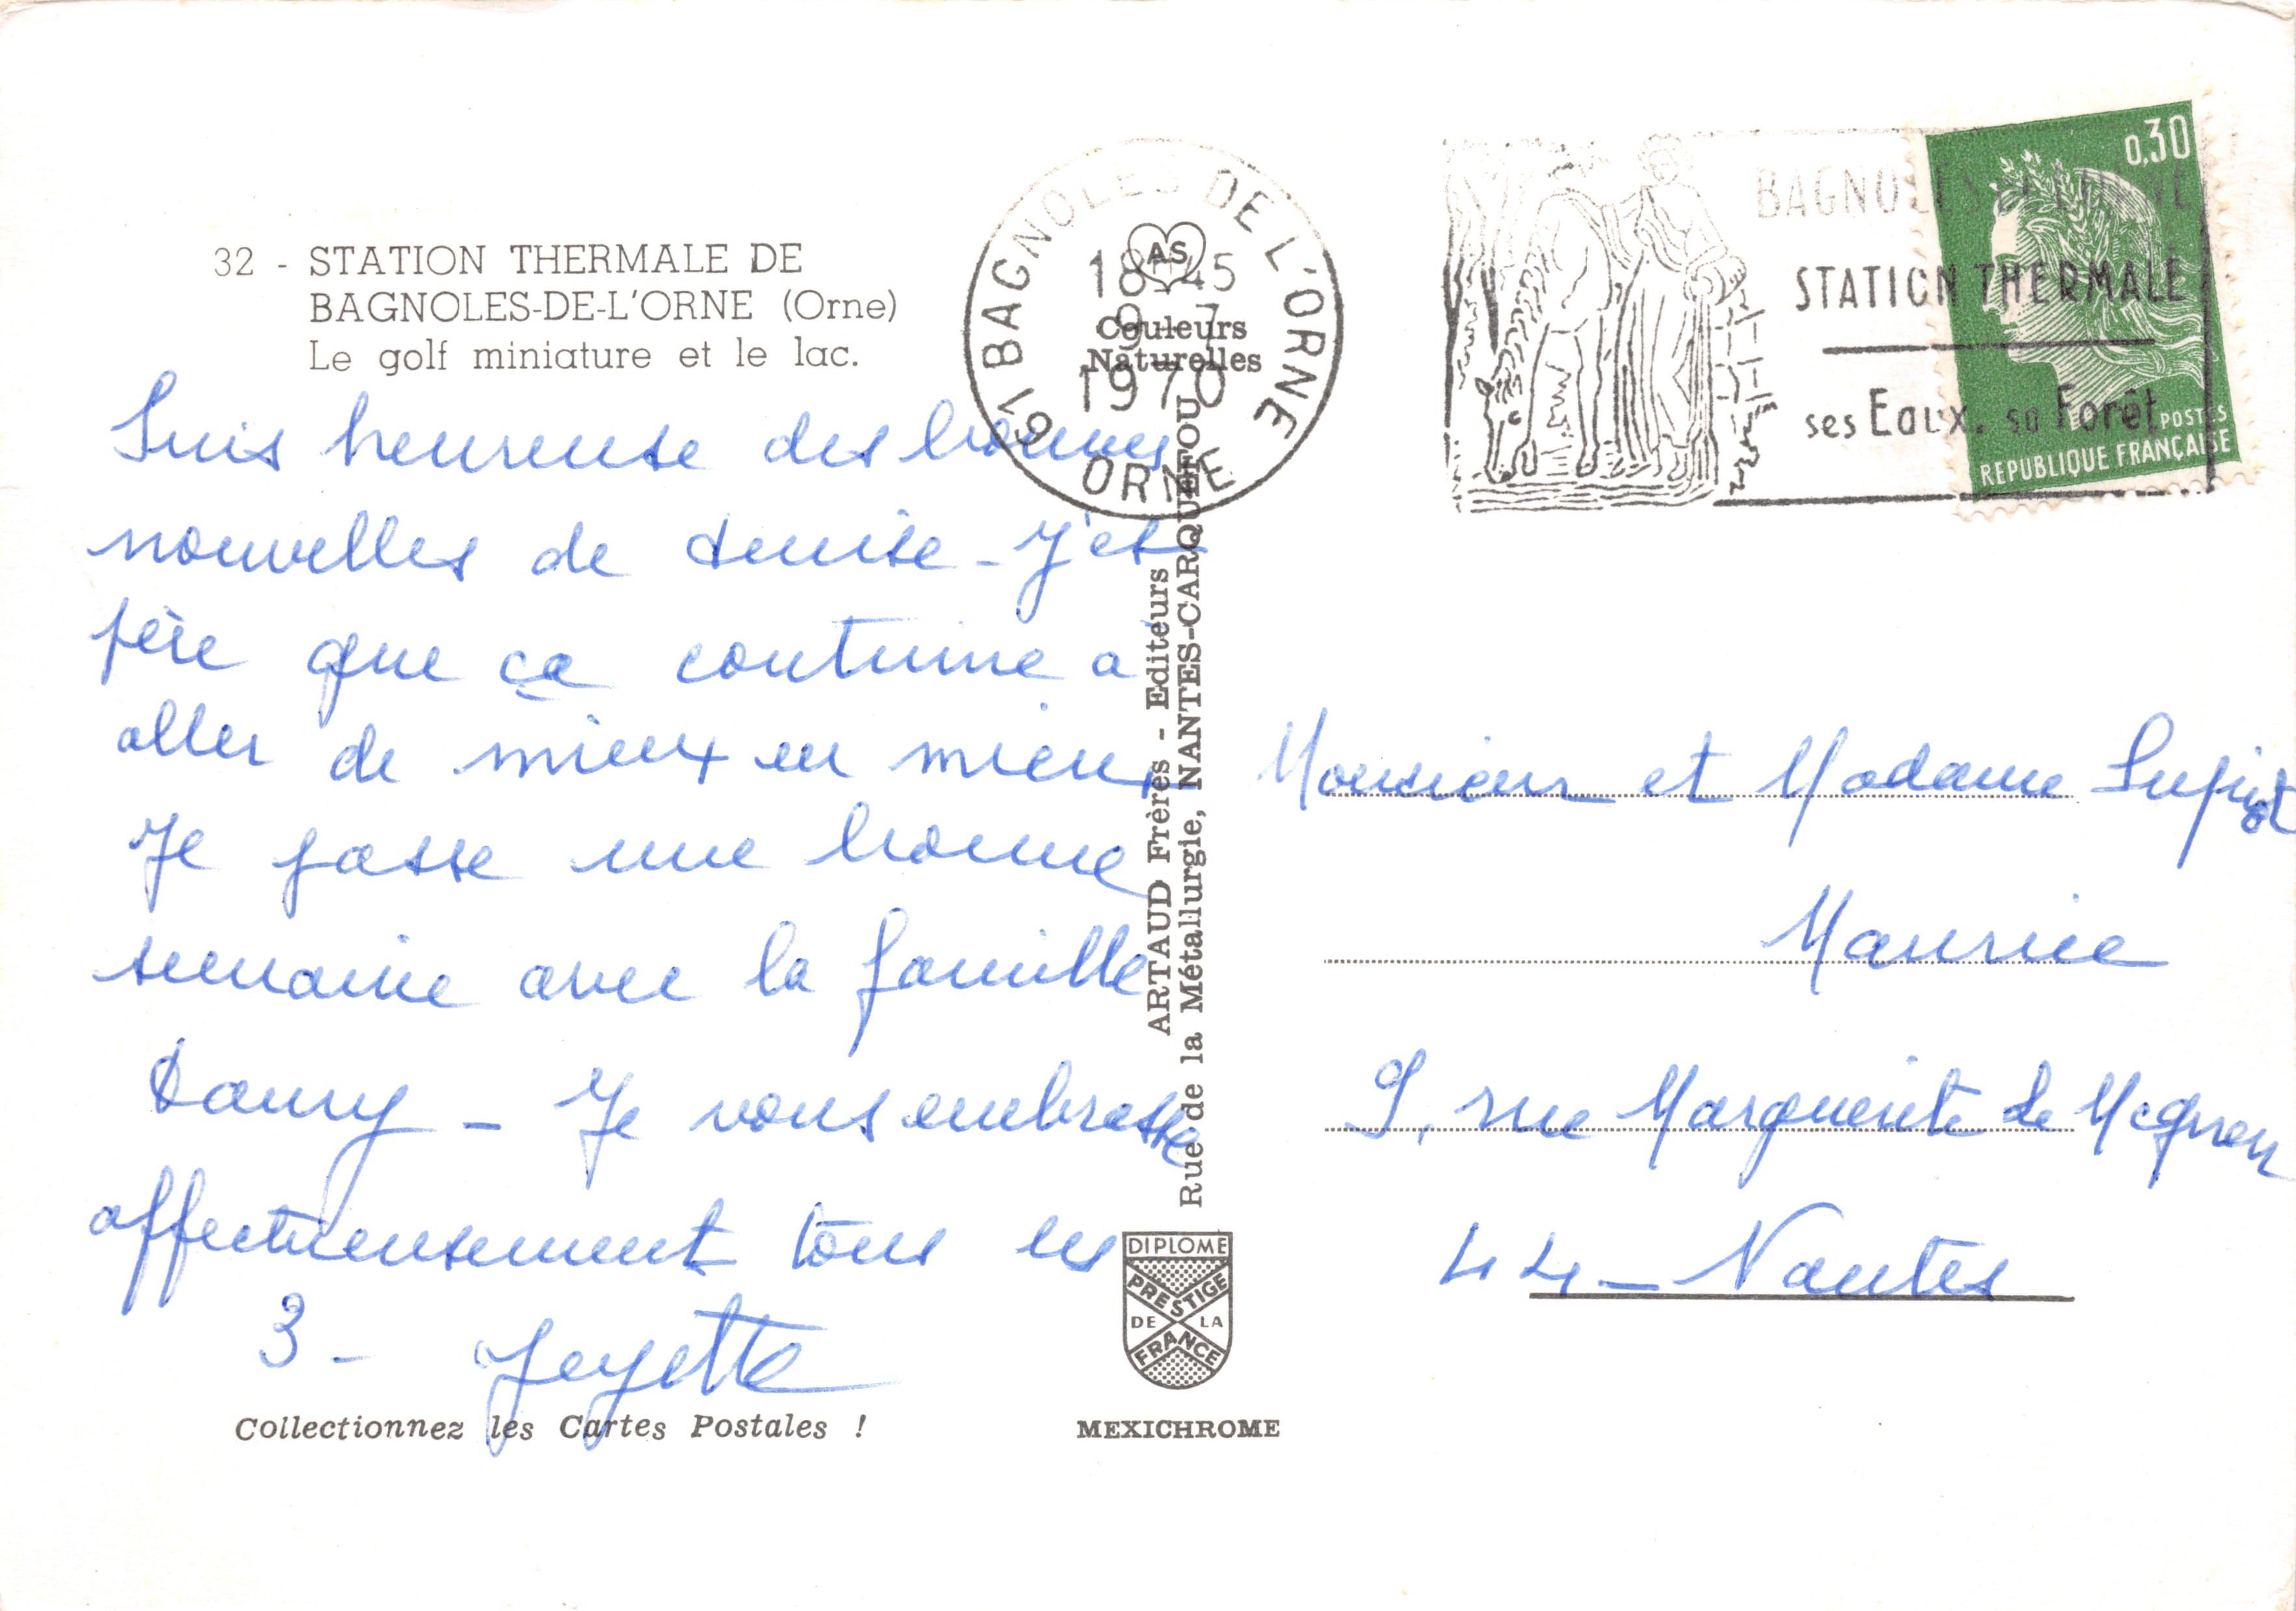 32 - STATION THERMALE DE
BAGNOLES-DE-L'ORNE (Orne)
Le golf miniature et le lac.
Suis heureuse des bonnes
nouvelles de denise - J'es
père que ça continue a
aller de mieux en mieux
Je passe une bonne
semaine avec la famille
Daury - Je vous embrasse
affectueusement tous les
3 -
Collectionnez les Cartes Postales !
61 BAGNOLES DE L'ORNE
18-45
9-7
1970
ORNE
AS
Couleurs
Naturelles
ARTAUD Frères - Editeurs
Rue de la Métallurgie, NANTES-CARQUEFOU
DIPLOME
PRESTIGE
DE LA
FRANCE
MEXICHROME
BAGNOLES DE L'ORNE
STATION THERMALE
ses Eaux. sa Forêt
0,30
POSTES
REPUBLIQUE FRANÇAISE
Monsieur et Madame Supiot
Maurice
9, rue Marguerite de
44 - Nantes